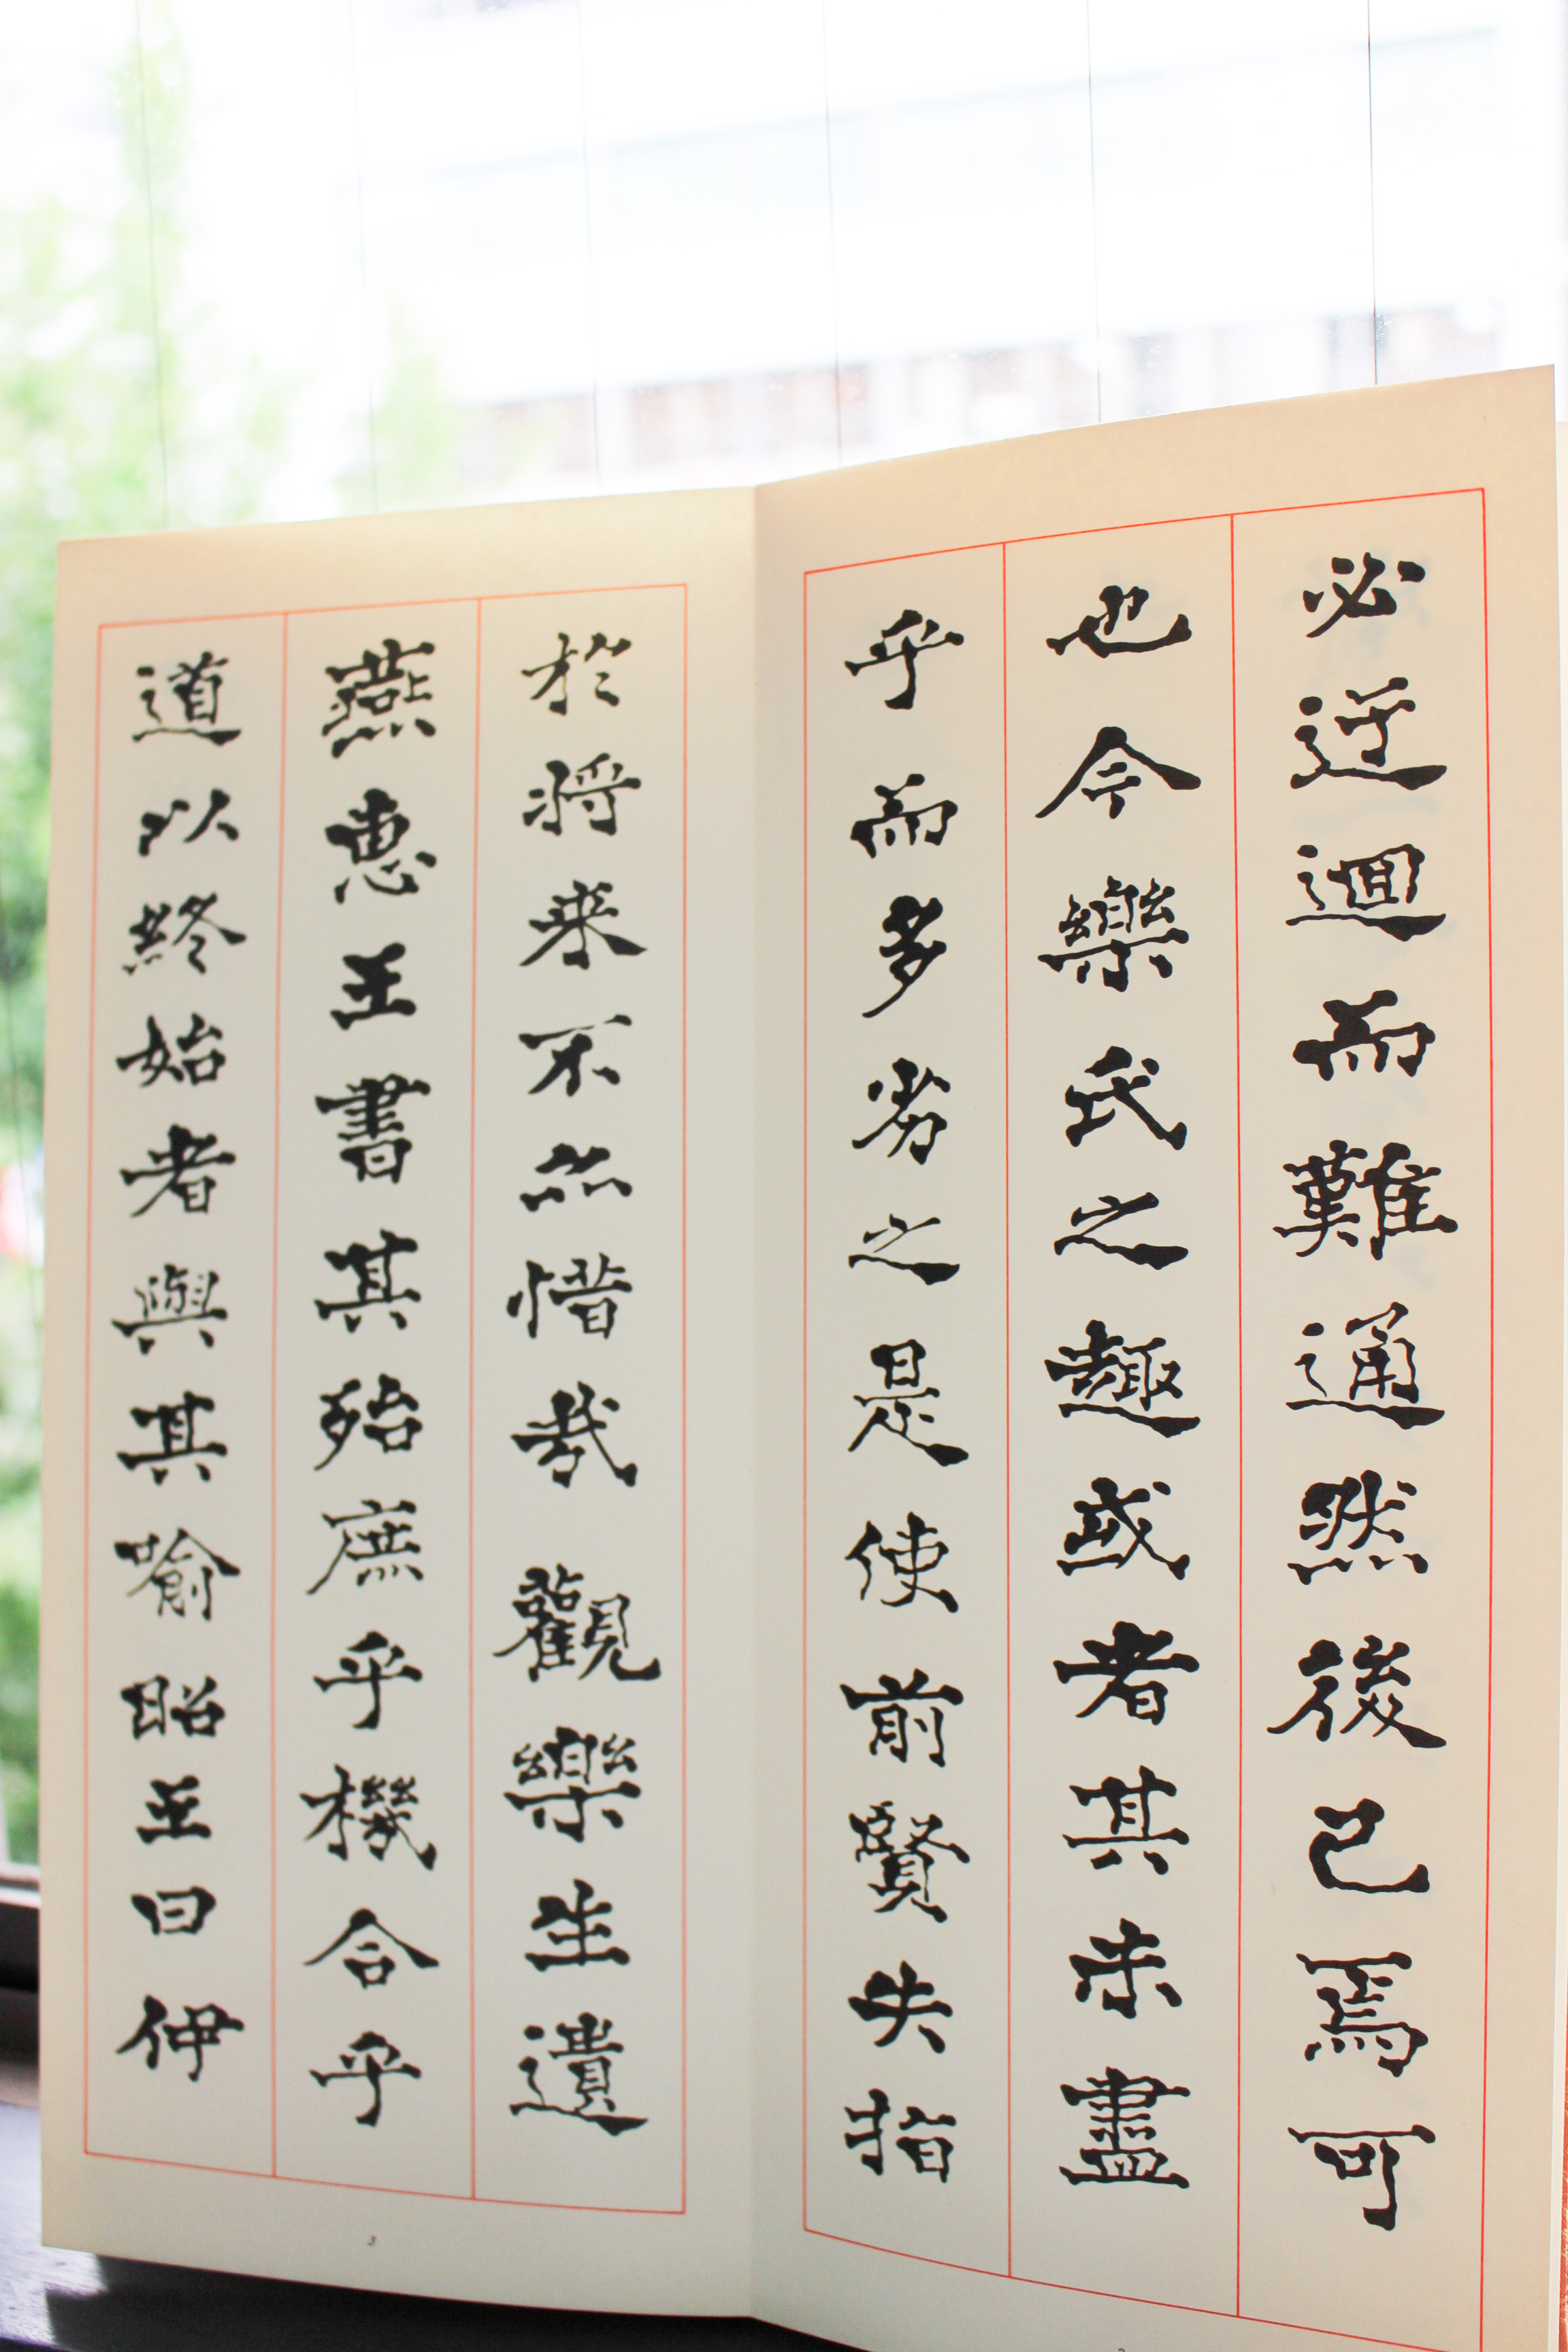 必迂迴而難通然後已焉可
也今樂氏之趣或者其未盡
乎而多劣之是使前賢失指
於将来不亦惜哉觀樂生遺
燕惠王書其殆庶乎機合乎
道以終始者與其喻昭王曰伊
3